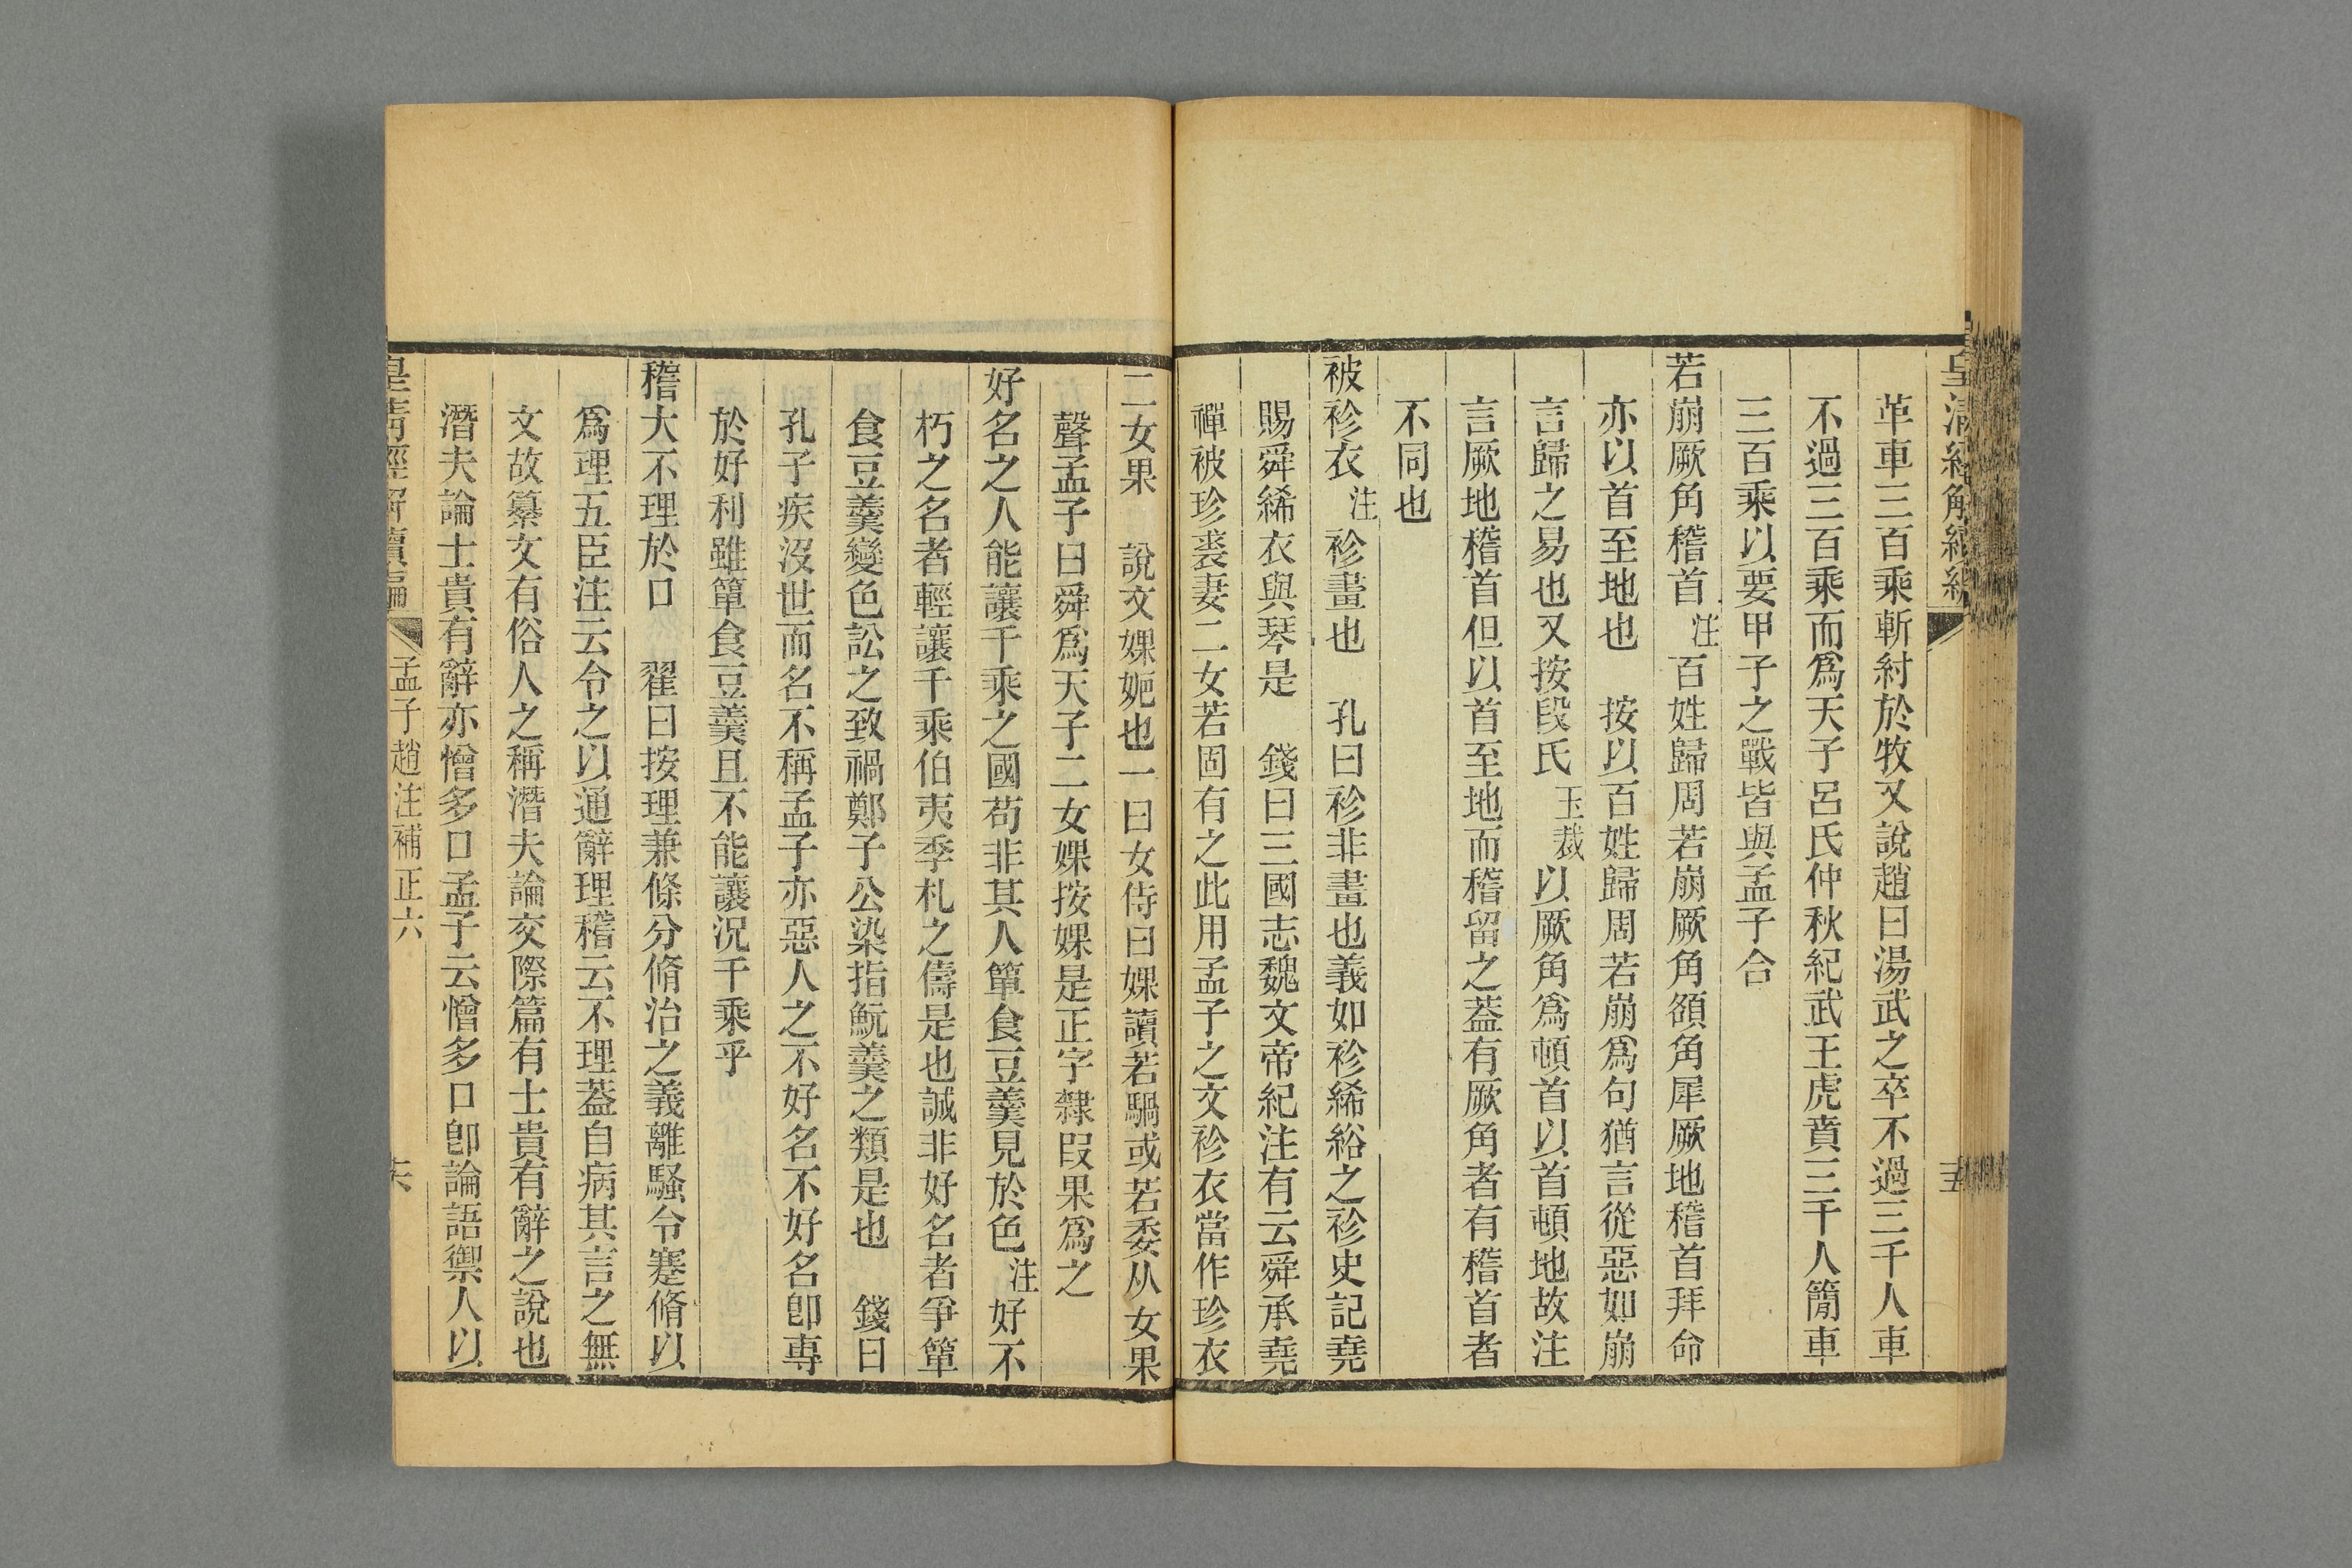 革車三百乘斬紂於牧又說趙曰湯武之卒不過三千人車
不過三百乘而爲天子呂氏仲秋紀武王虎賁三千人簡車
三百乘以要甲子之戰皆與孟子合
若崩厥角稽首注百姓歸周若崩厥角頟角犀厥地稽首拜命
亦以首至地也　按以百姓歸周若崩爲句猶言從惡如崩
言歸之易也又按段氏玉裁以厥角爲頓首以首頓地故注
言厥地稽首但以首至地而稽留之蓋有厥角者有稽首者
不同也
被袗衣注袗畫也　孔曰袗非畫也義如袗絺綌之袗史記堯
賜舜絺衣與琴是　錢曰三國志魏文帝紀注有云舜承堯
禪被珍裘妻二女若固有之此用孟子之文袗衣當作珍衣
二女果　說文婐婉也一曰女侍曰婐讀若騧或若委从女果
聲孟子曰舜爲天子二女婐按婐是正字隸叚果爲之
好名之人能讓千乘之國苟非其人簞食豆羹見於色注好不
朽之名者輕讓千乘伯夷季札之儔是也誠非好名者爭簞
食豆羹變色訟之致禍鄭子公染指魭羹之類是也　錢曰
孔子疾沒世而名不稱孟子亦惡人之不好名不好名卽專
於好利雖簞食豆羹且不能讓況千乘乎
稽大不理於口　翟曰按理兼條分脩治之義離騷令蹇脩以
爲理五臣注云令之以通辭理稽云不理蓋自病其言之無
文故纂文有俗人之稱潛夫論交際篇有士貴有辭之說也
潛夫論士貴有辭亦憎多口孟子云憎多口卽論語禦人以
皇清經解續編　孟子趙注補正六